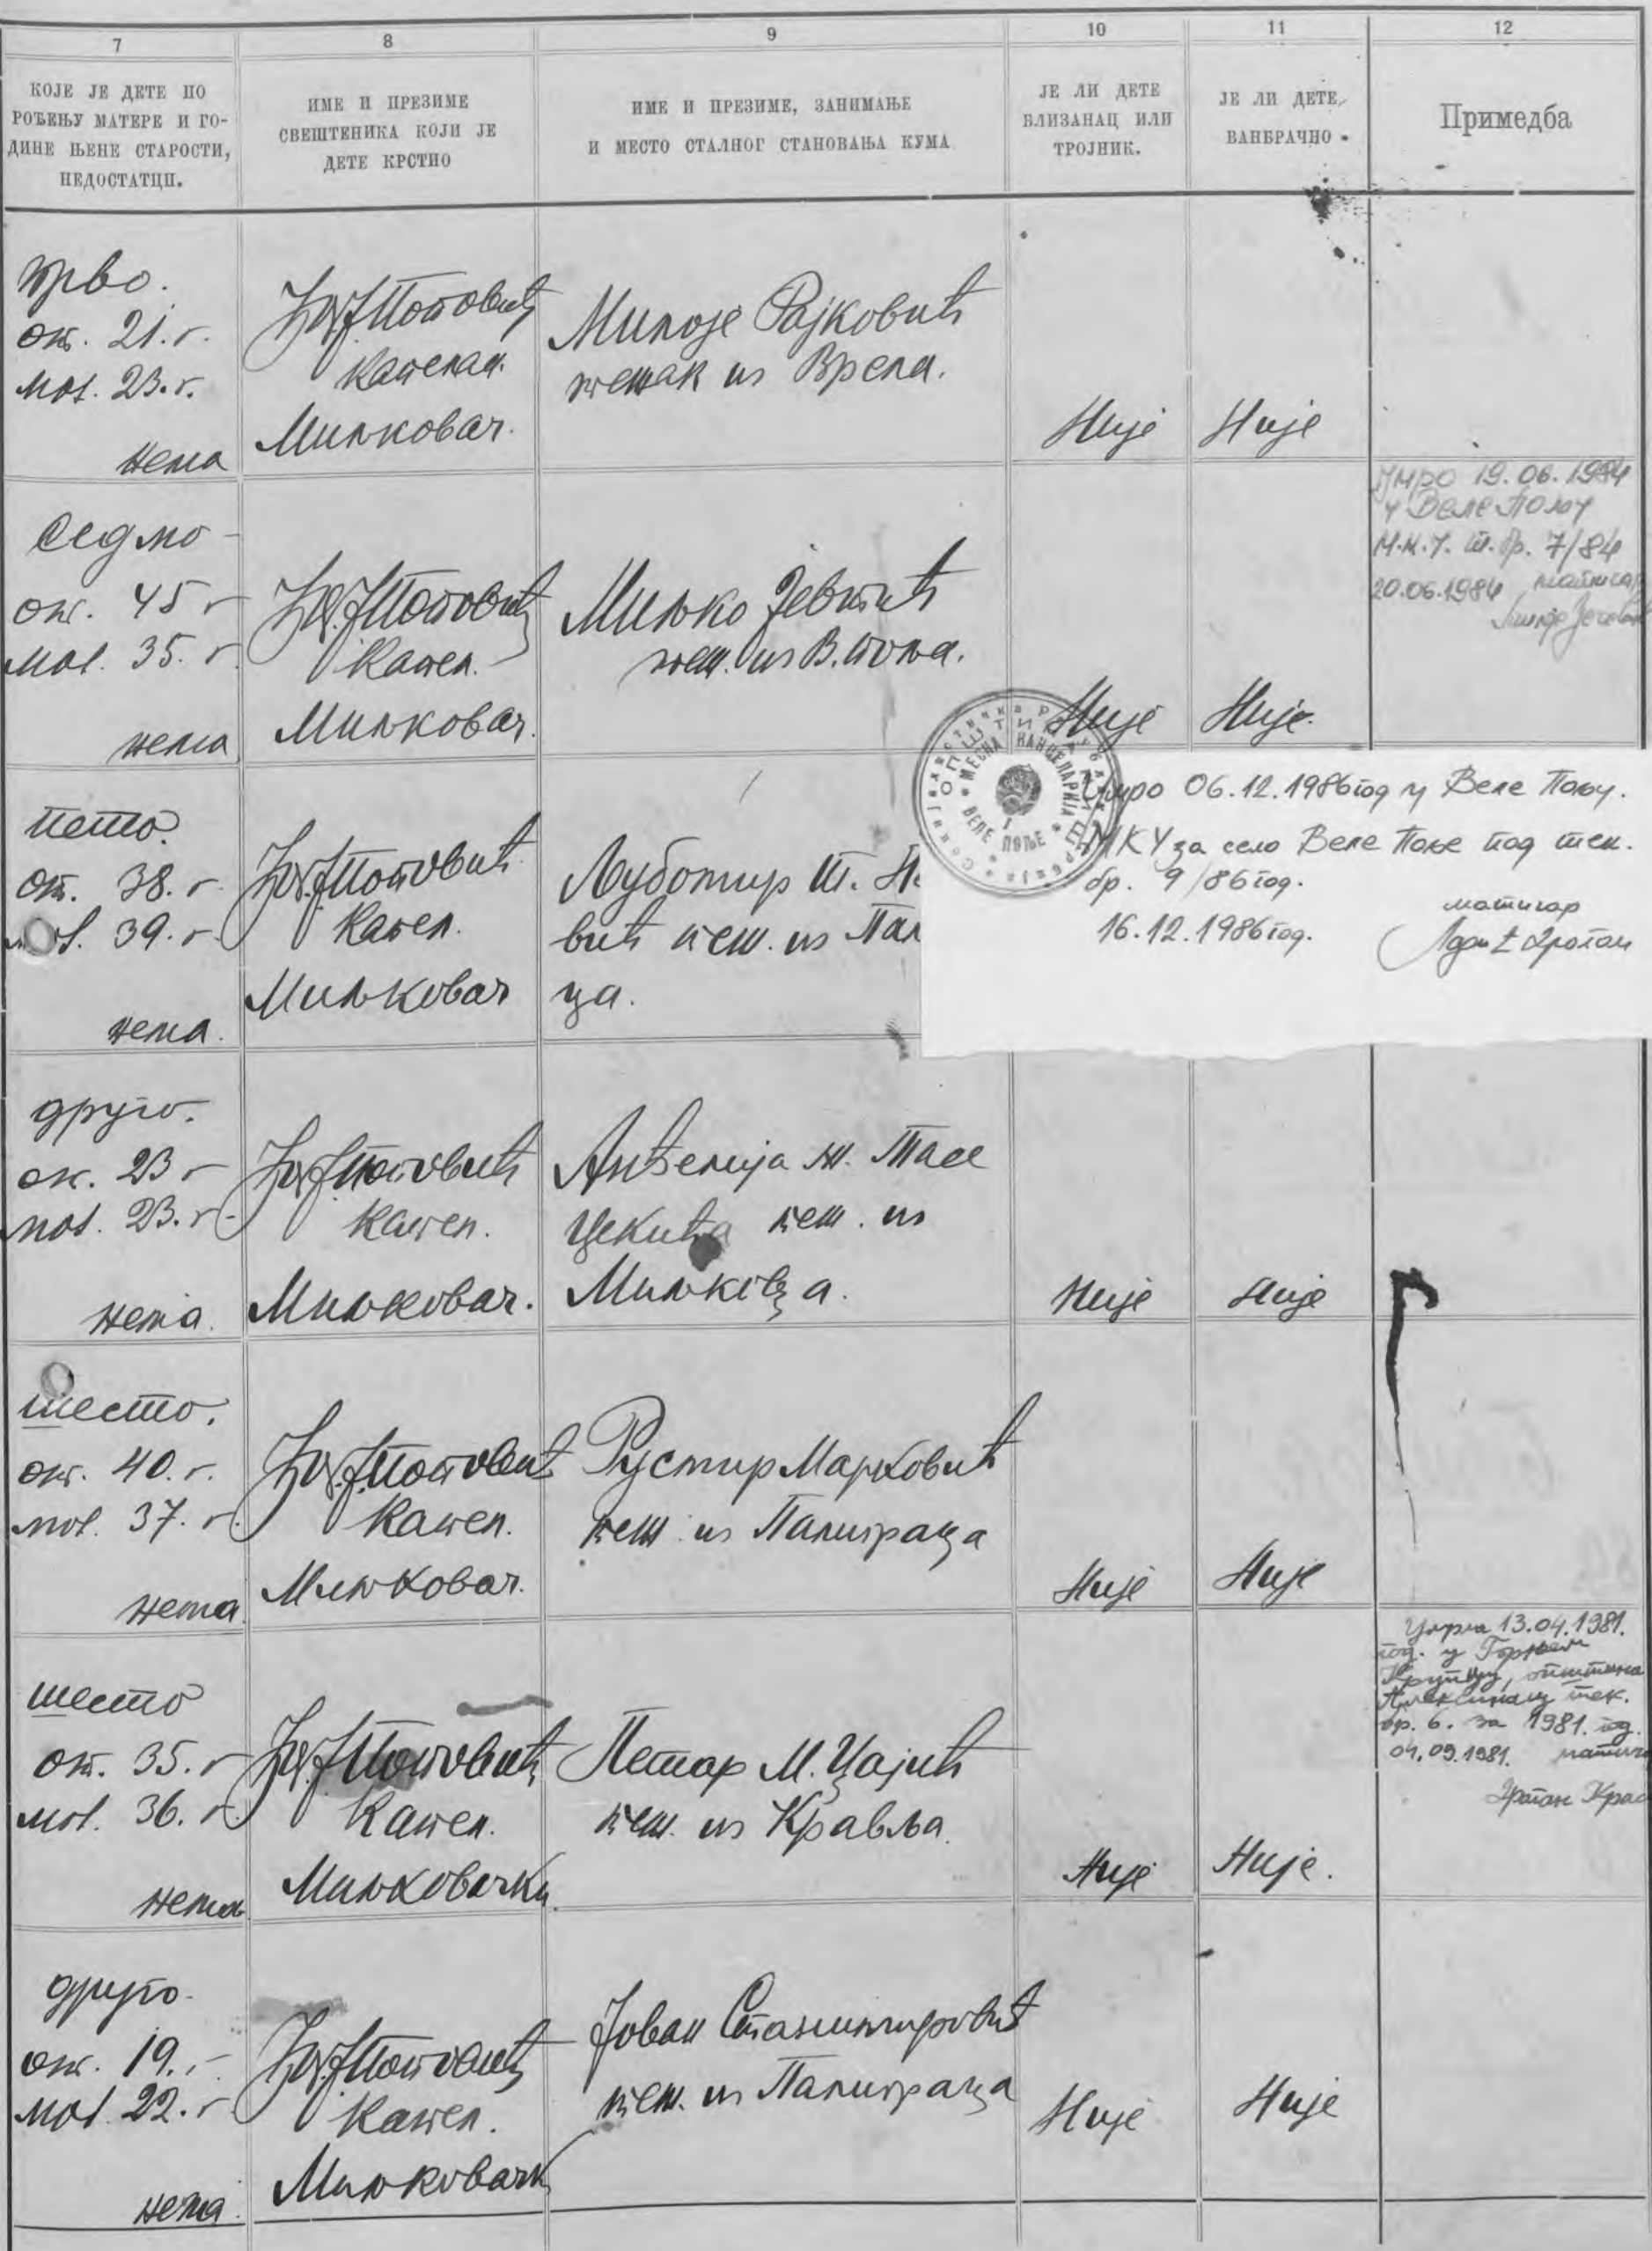 7
8
9
10
11
12
КОЈЕ ЈЕ ДЕТЕ ПО
РОЂЕЊУ МАТЕРЕ И ГО-
ДИНЕ ЊЕНЕ СТАРОСТИ,
НЕДОСТАТЦИ.
ИМЕ И ПРЕЗИМЕ
СВЕШТЕНИКА КОЈИ ЈЕ
ДЕТЕ КРСТИО
ИМЕ И ПРЕЗИМЕ, ЗАНИМАЊЕ
И МЕСТО СТАЛНОГ СТАНОВАЊА КУМА
ЈЕ ЛИ ДЕТЕ
БЛИЗАНАЦ ИЛИ
ТРОЈНИК.
ЈЕ ЛИ ДЕТЕ
ВАНБРАЧНО
Примедба
прво.
21. г.
23. г.
нема
Поповић
капелан
Миљковач.
Милоје Рајковић
тежак из Врела.
Није
Није
седмо
45 г
35. г.
нема
Поповић
капел.
Миљковач.
Миљко Јевтић
теж. из В. поља.
Није
Није.
Умро 19.06.1984
у Веле Пољу
М.К.У. т. бр. 7/84
20.06.1984 матичар
пето.
38. г.
39. г.
нема.
Поповић
капел.
Миљковач
Љубомир Ст.
вић теж. из Пал
ца.
МЕСНА КАНЦЕЛАРИЈА
ВЕЛЕ ПОЉЕ
Умро 06.12.1986 год у Веле Пољу.
МКУ за село Веле Поље под тек.
бр. 9/86 год.
16.12.1986 год.
матичар
друго.
23 г
23. г.
нема.
Поповић
капел.
Миљковач.
Анђелија ж. Тасе
Цекића теж. из
Миљковца.
Није
Није
шесто.
40. г.
37. г.
нема.
Поповић
капел.
Миљковач.
Рустир Марковић
теж. из Палиграца
Није
Није
шесто
35. г
36. г.
нема
Поповић
капел.
Миљковачки
Петар М. Цајић
теж. из Кравља.
Није
Није.
Умрла 13.04.1981.
год. у Горњем
Крупцу, општина
Алексинац тек.
бр. 6. за 1981. год.
04.09.1981.
друго.
19. г
22. г
нема.
Поповић
капел.
Миљковачк
Јован Станимировић
теж. из Палиграца
Није
Није